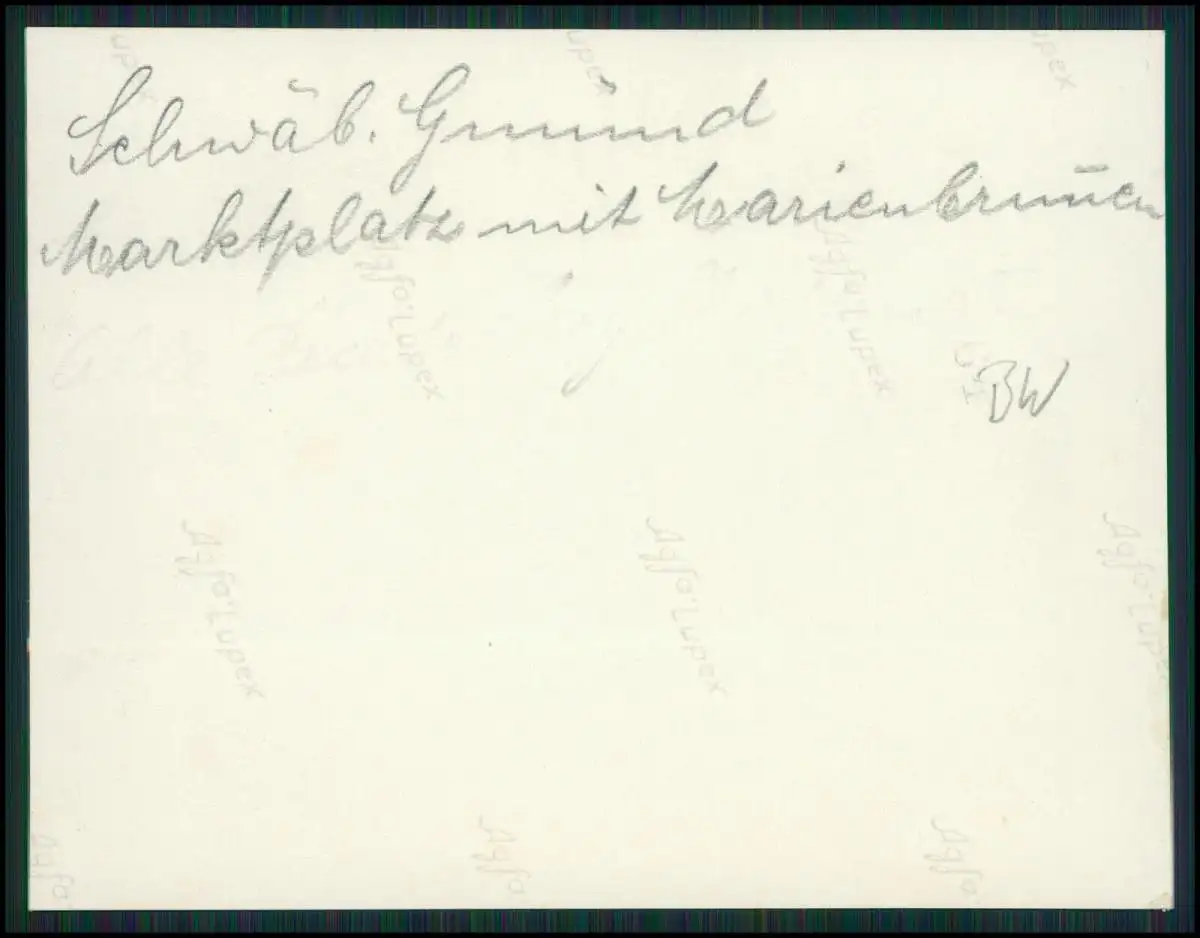 Schwäb. Gmünd
Marktplatz mit Marienbrun̄en
BW
Agfa-Lupex
Agfa-Lupex
Agfa-Lupex
Agfa-Lupex
Agfa-Lupex
Agfa
Agfa
Agfa